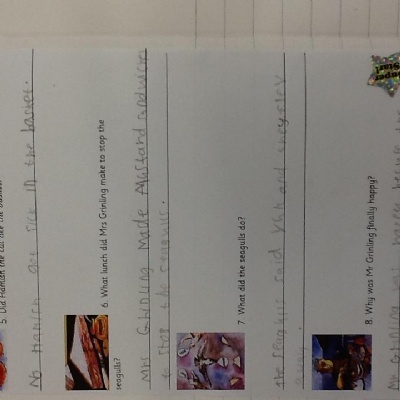 5. Did Hamish the cat like the basket?
No Hamish in the basket.
6. What lunch did Mrs Grinling make to stop the
seagulls?
Mrs Grinling made Mustard
to stop the seagulls.
7 What did the seagulls do?
the said Yhh and
8. Why was Mr Grinling finally happy?
Mr Grinling was because the
Super
Star!